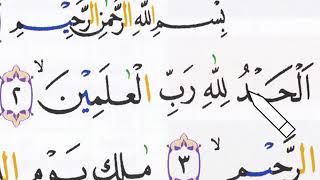 بِسْمِ اللّٰهِ الرَّحْمٰنِ الرَّحِيْمِ
اَلْحَمْدُ لِلّٰهِ رَبِّ الْعٰلَمِيْنَ ۙ ٢
الرَّحِيْمِ ۙ ٣ مٰلِكِ يَوْمِ